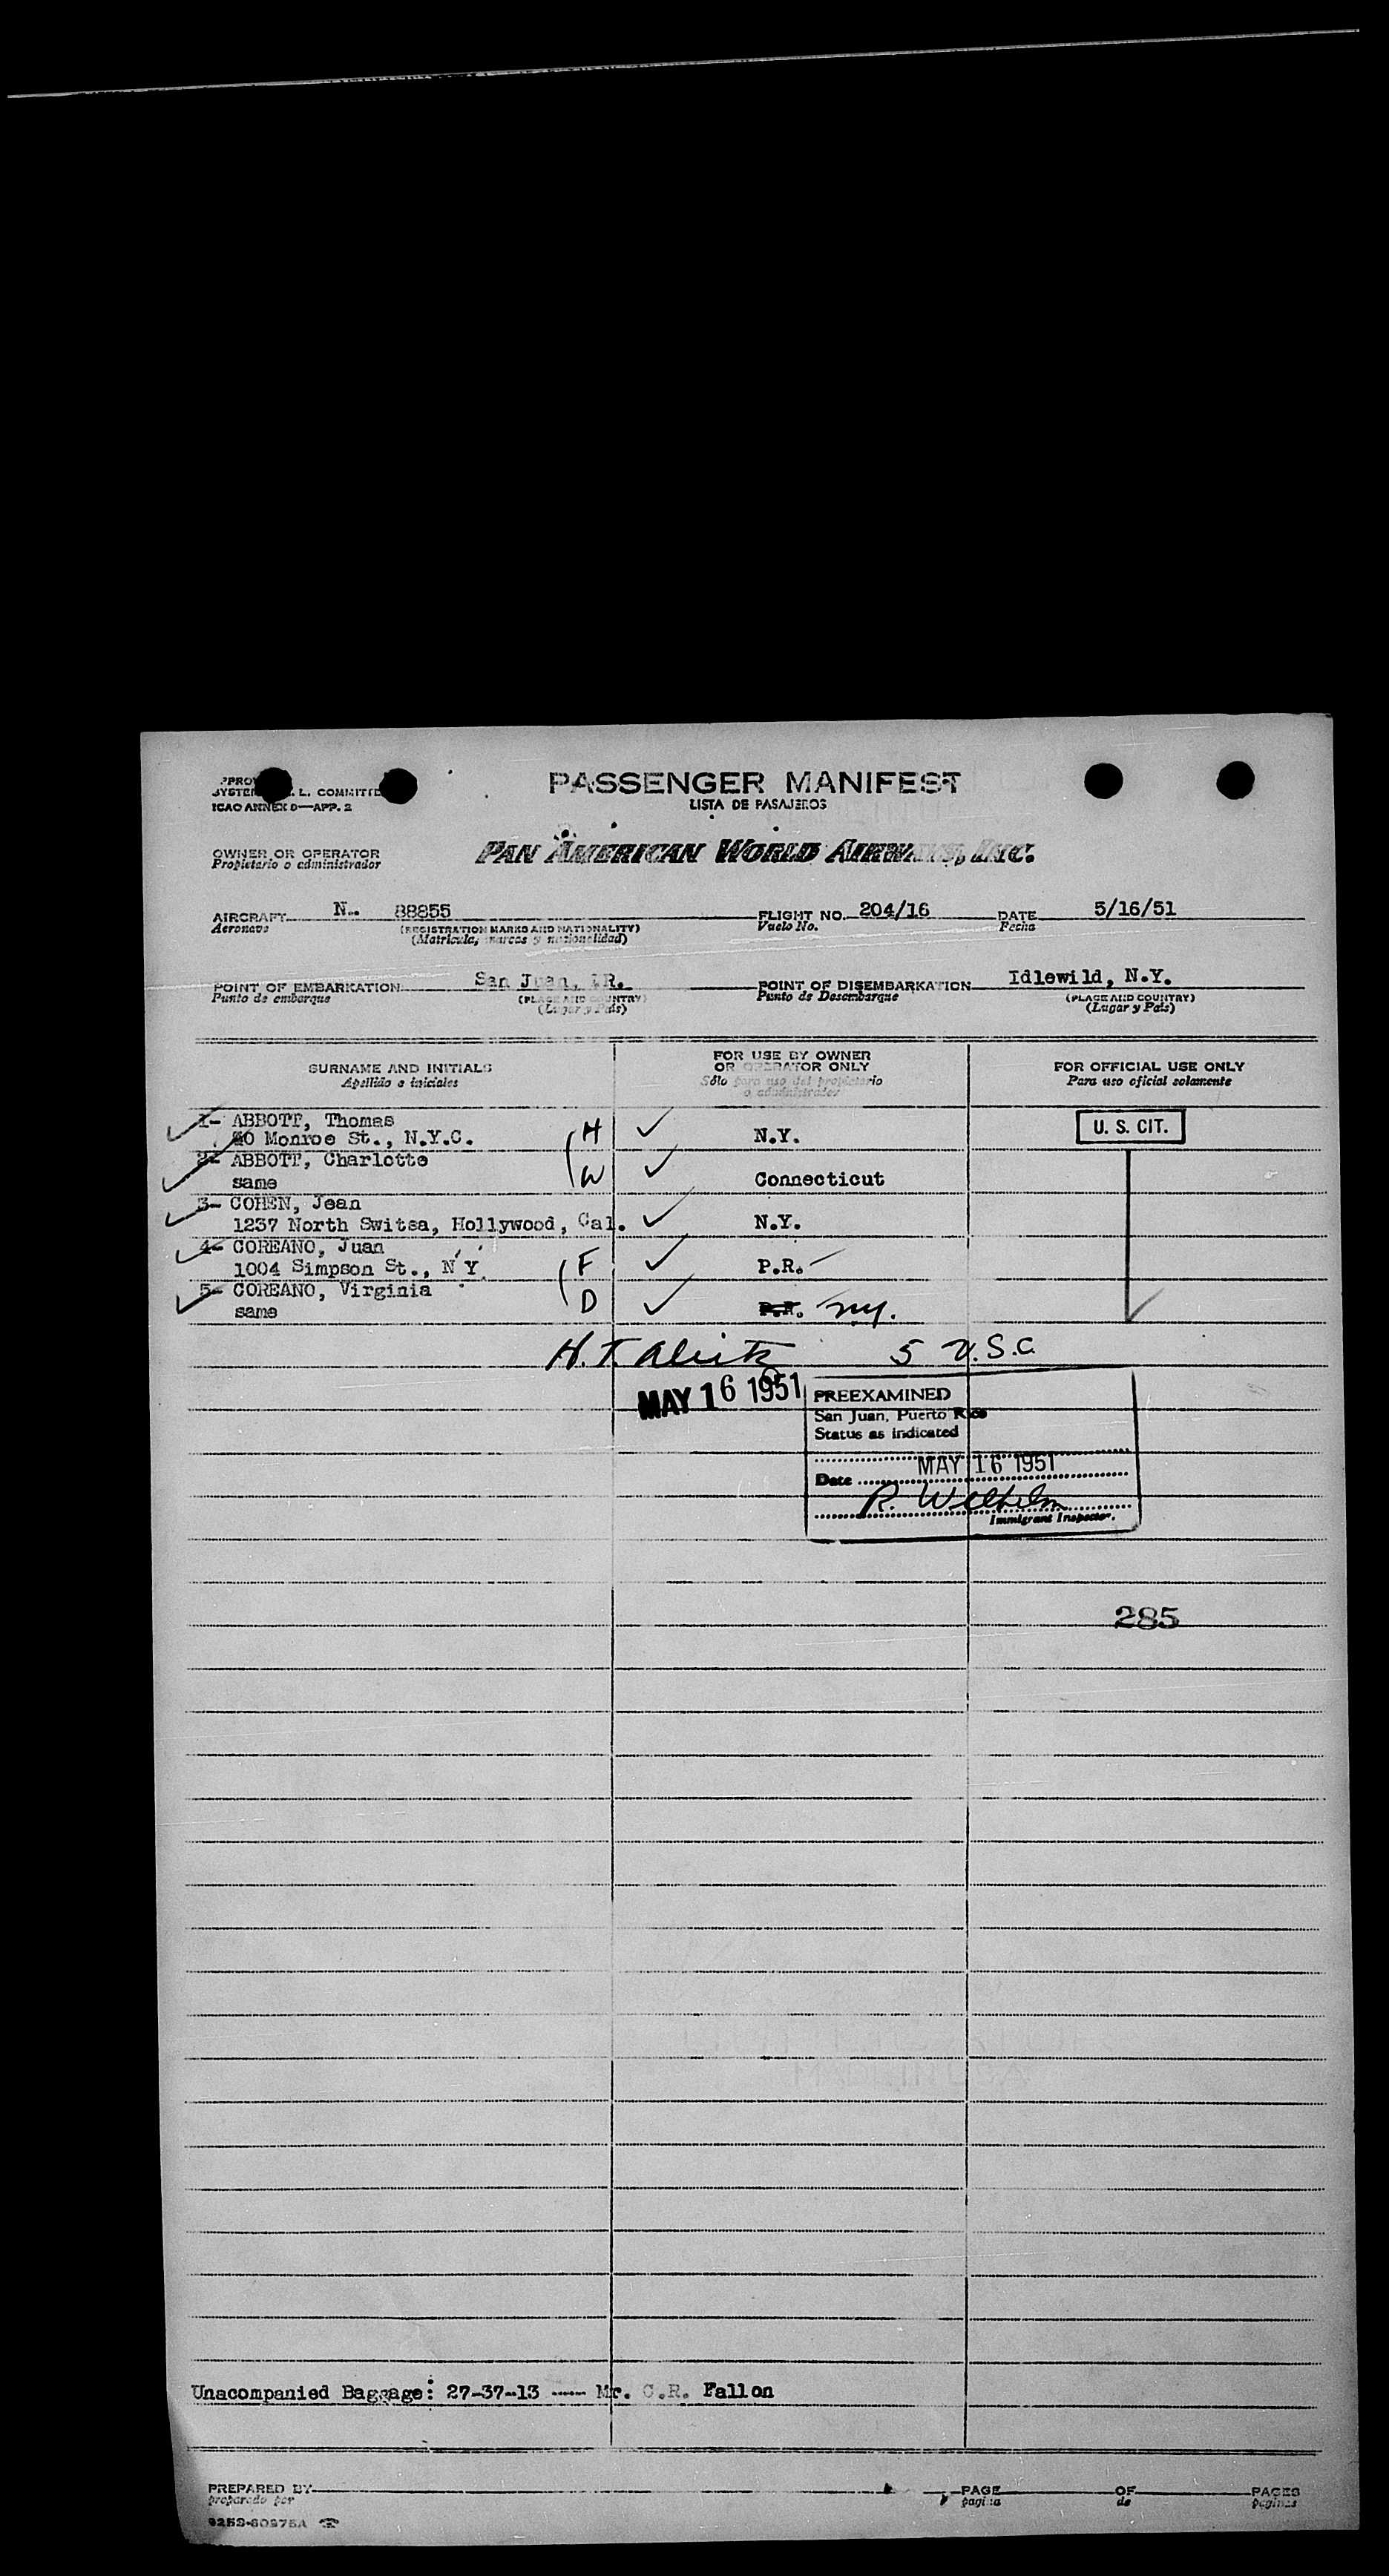 PASSENGER MANIFEST
LISTA DE PASAJEROS
L. COMMITTE
ICAO ANNEX 9—APP. 2
OWNER OR OPERATOR
Propietario o administrador
PAN AMERICAN WORLD AIRWAYS, INC.
AIRCRAFT N.. 88855 FLIGHT NO. 204/16 DATE 5/16/51
Aeronave (REGISTRATION MARKS AND NATIONALITY) Vuelo No. Fecha
(Matricula, marcas y nacionalidad)
POINT OF EMBARKATION San Juan, PR. POINT OF DISEMBARKATION Idlewild, N.Y.
Punto de embarque (PLACE AND COUNTRY) Punto de Desembarque (PLACE AND COUNTRY)
(Lugar y País) (Lugar y País)
SURNAME AND INITIALS FOR USE BY OWNER OR OPERATOR ONLY FOR OFFICIAL USE ONLY
Apellido e iniciales Sólo para uso del propietario o administrador Para uso oficial solamente
1- ABBOTT, Thomas U. S. CIT.
40 Monroe St., N.Y.C. H N.Y.
2- ABBOTT, Charlotte
same W Connecticut
3- COHEN, Jean
1237 North Switsa, Hollywood, Cal. N.Y.
4- COREANO, Juan
1004 Simpson St., N Y F P.R.
5- COREANO, Virginia
same D P.R. ny.
H. T. 5 U.S.C.
MAY 16 1951
PREEXAMINED
San Juan, Puerto Rico
Status as indicated
Date MAY 16 1951
R. Wilhelm
Immigrant Inspector.
285
Unacompanied Baggage: 27-37-13 ---- Mr. C.R. Fallon
PREPARED BY PAGE OF PAGES
preparado por pagina de paginas